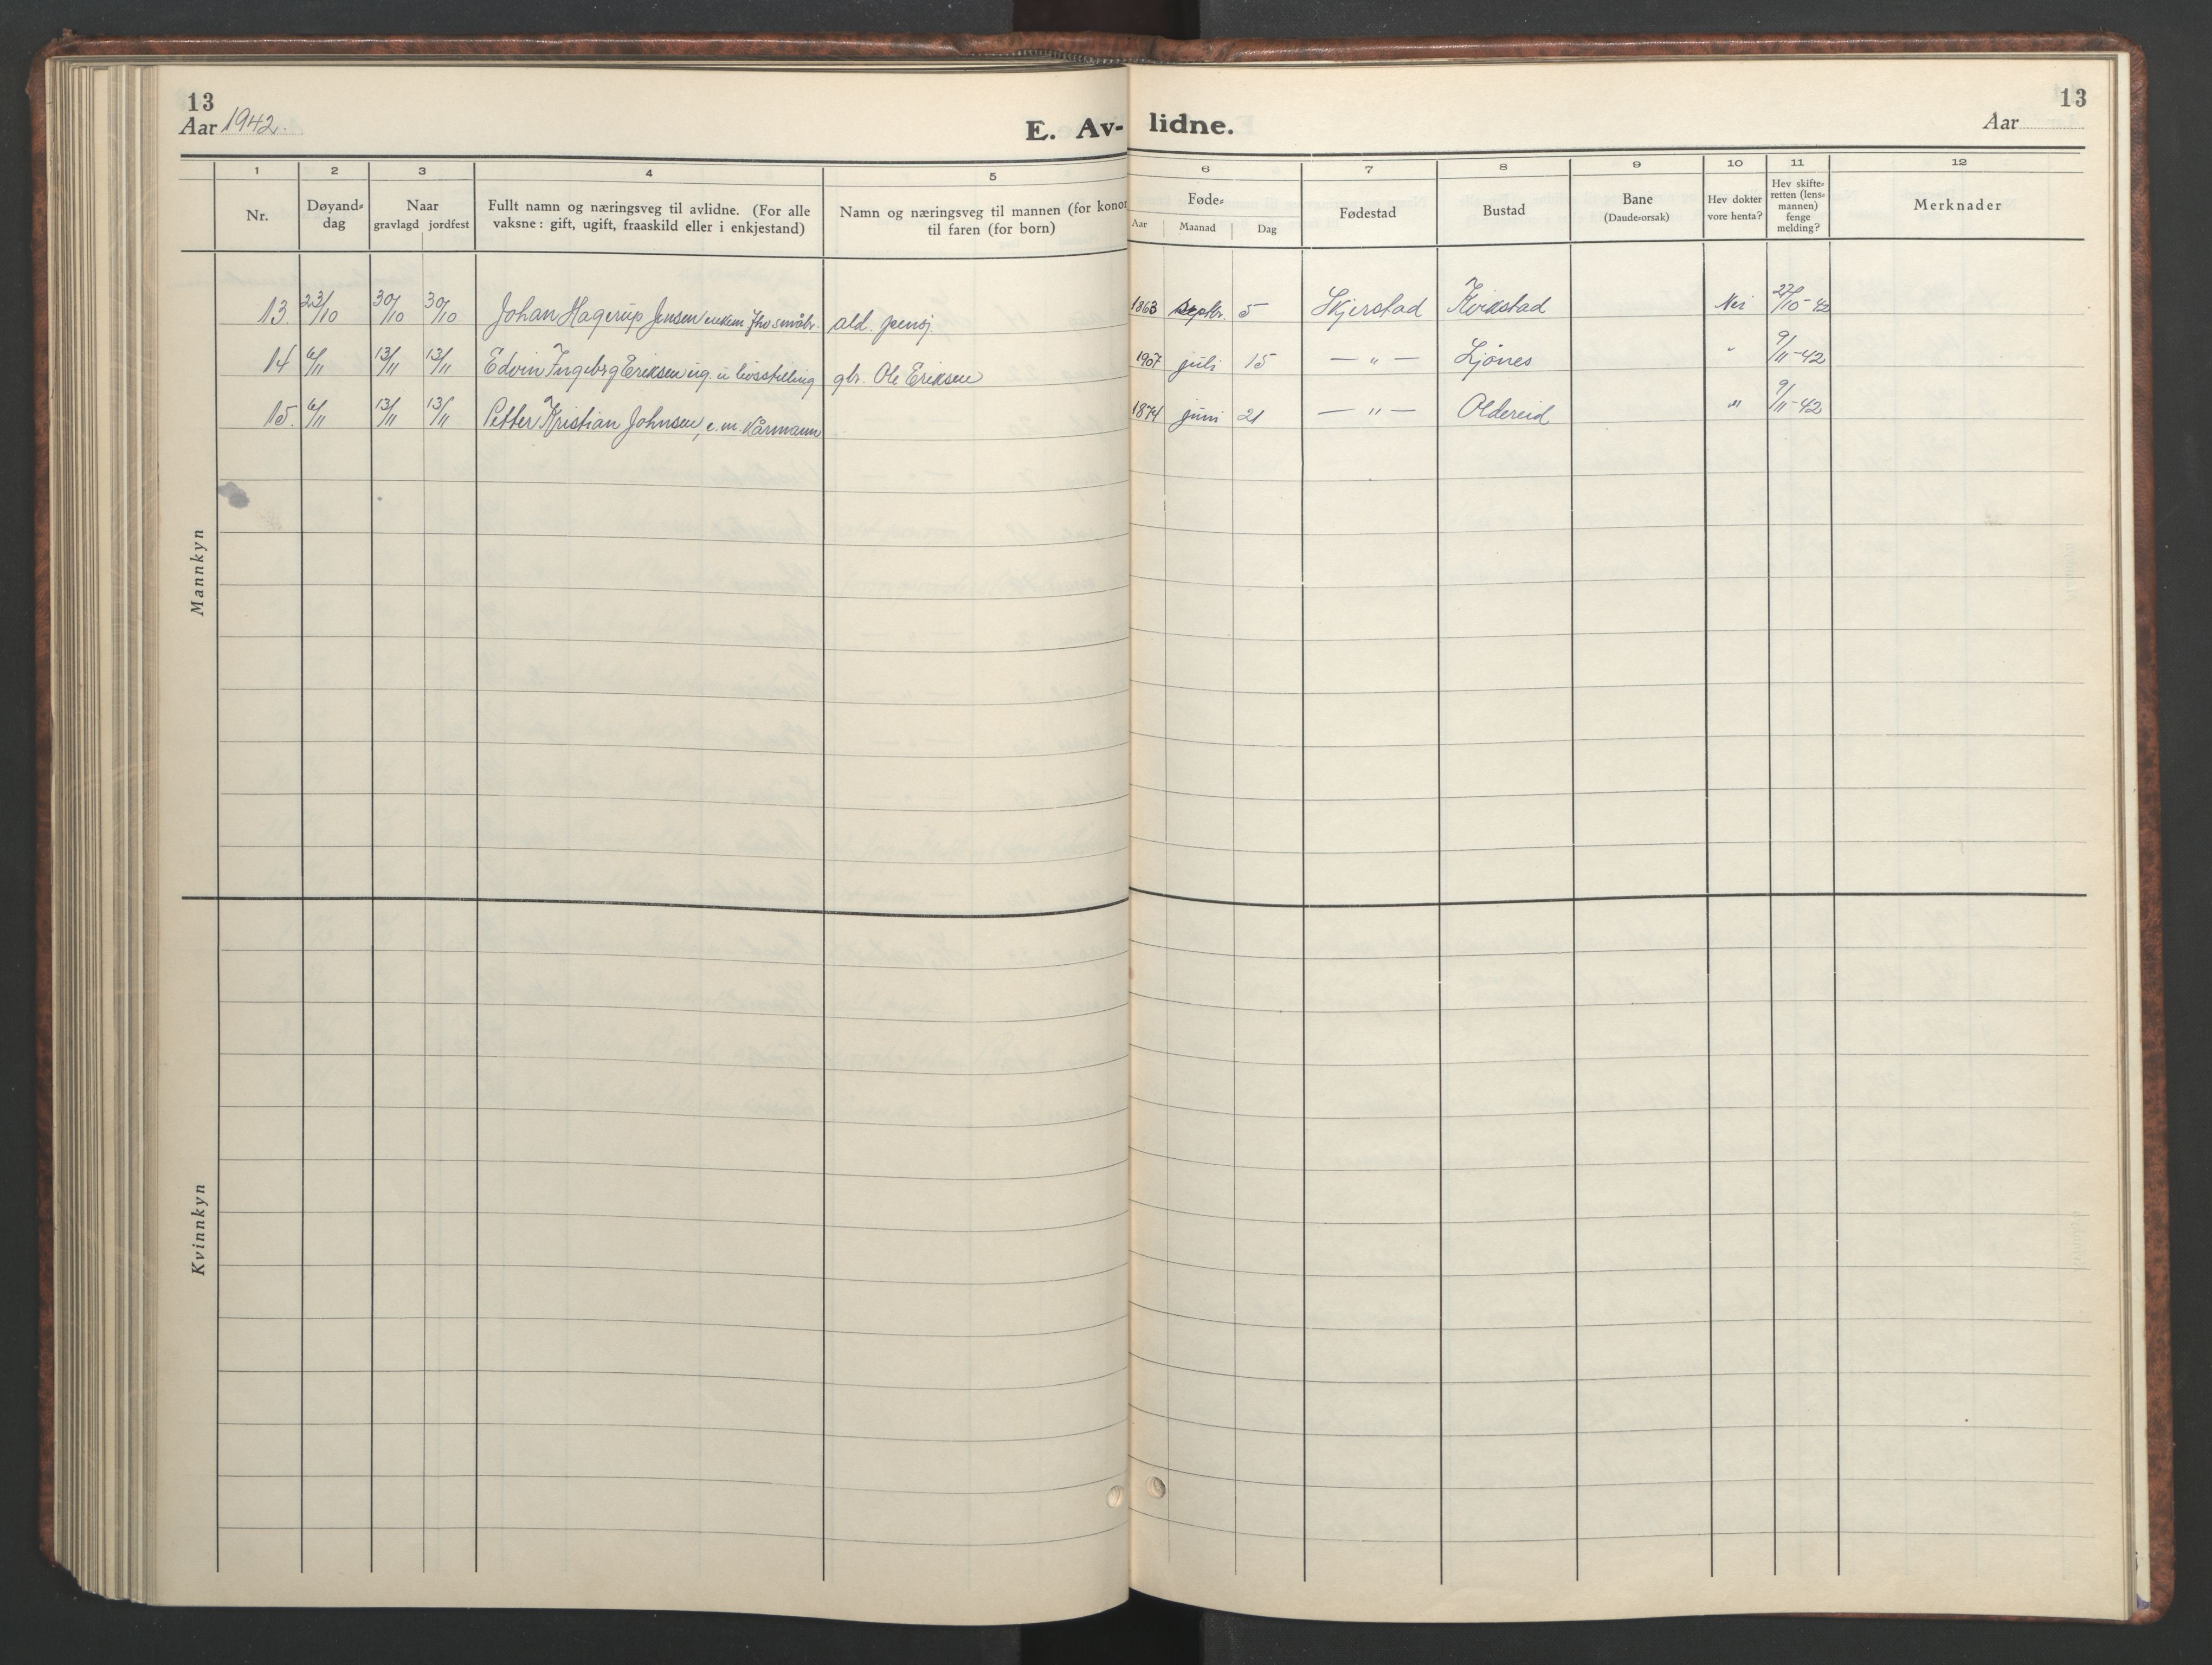 13
Aar 1942.
E. Av-
1 2 3 4 5
Nr. Døyand-dag Naar gravlagd jordfest Fullt namn og næringsveg til avlidne. (For alle vaksne: gift, ugift, fraaskild eller i enkjestand) Namn og næringsveg til mannen (for konor til faren (for born)
Mannkyn
13. 23/10 30/10 30/10 Johan Hagerup Jensen enkem. fho småbr. ald. pensj.
14 6/11 13/11 13/11 Edvin Ingebrg Eriksen ug. u livsstilling gbr. Ole Eriksen
15. 6/11 13/11 13/11 Petter Kristian Johnsen, e.m. kårmann
Kvinnkyn
lidne.
13
Aar
6 7 8 9 10 11 12
Føde- Aar Maanad Dag Fødestad Bustad Bane (Daude-orsak) Hev dokter vore henta? Hev skifte-retten (lens-mannen) fenge melding? Merknader
1863 septbr. 5 Skjerstad Kvikstad Nei 27/10-42
1907 juli 15 — " — Ljønes " 9/11-42
1874 juni 21 — " — Oldereid " 9/11-42